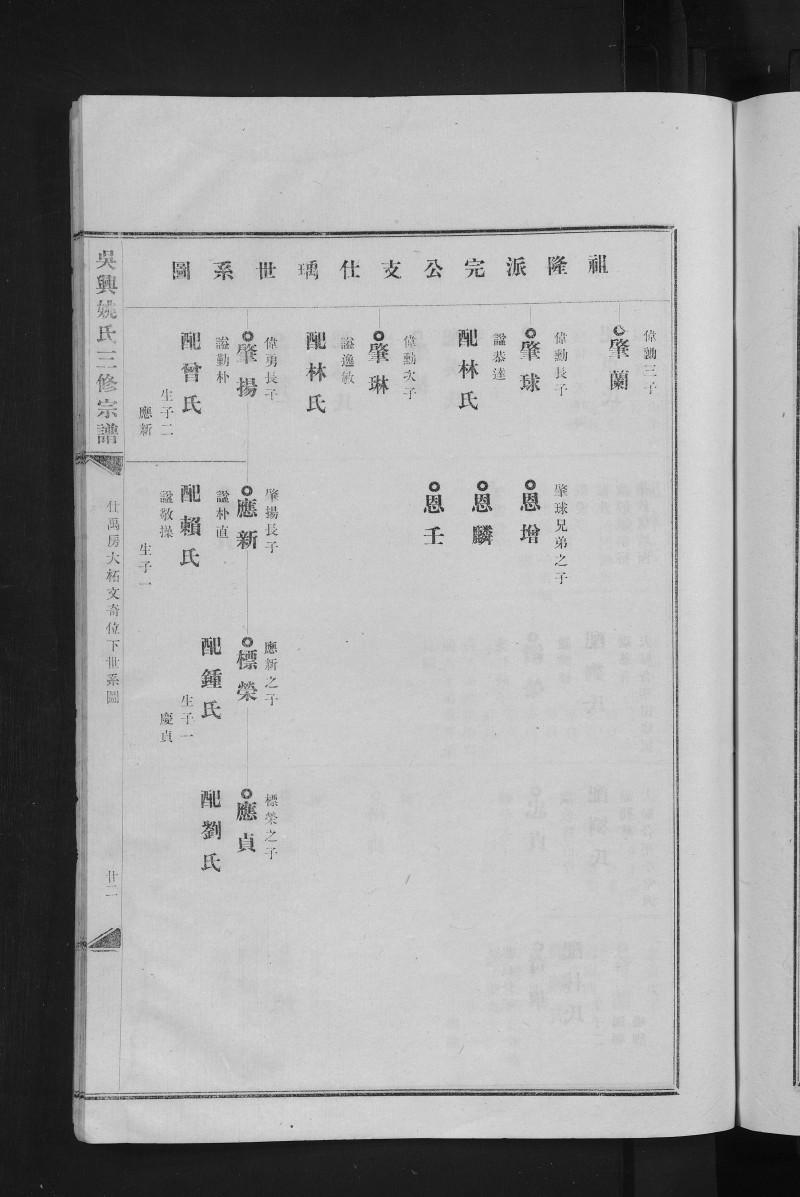 祖隆派完公支仕瑀世系圖
偉勳三子
肇蘭
偉勳長子
肇球
諡恭達
配林氏
偉勳次子
肇琳
諡逸敏
配林氏
偉勇長子
肇揚
諡勤朴
配曾氏
生子二
應新
肇球兄弟之子
恩增
恩麟
恩壬
肇揚長子
應新
諡朴直
配賴氏
諡敬操
生子一
應新之子
標榮
配鍾氏
生子一
慶貞
標榮之子
應貞
配劉氏
吳興姚氏三修宗譜
仕萬房大柘文奇位下世系圖
廿二